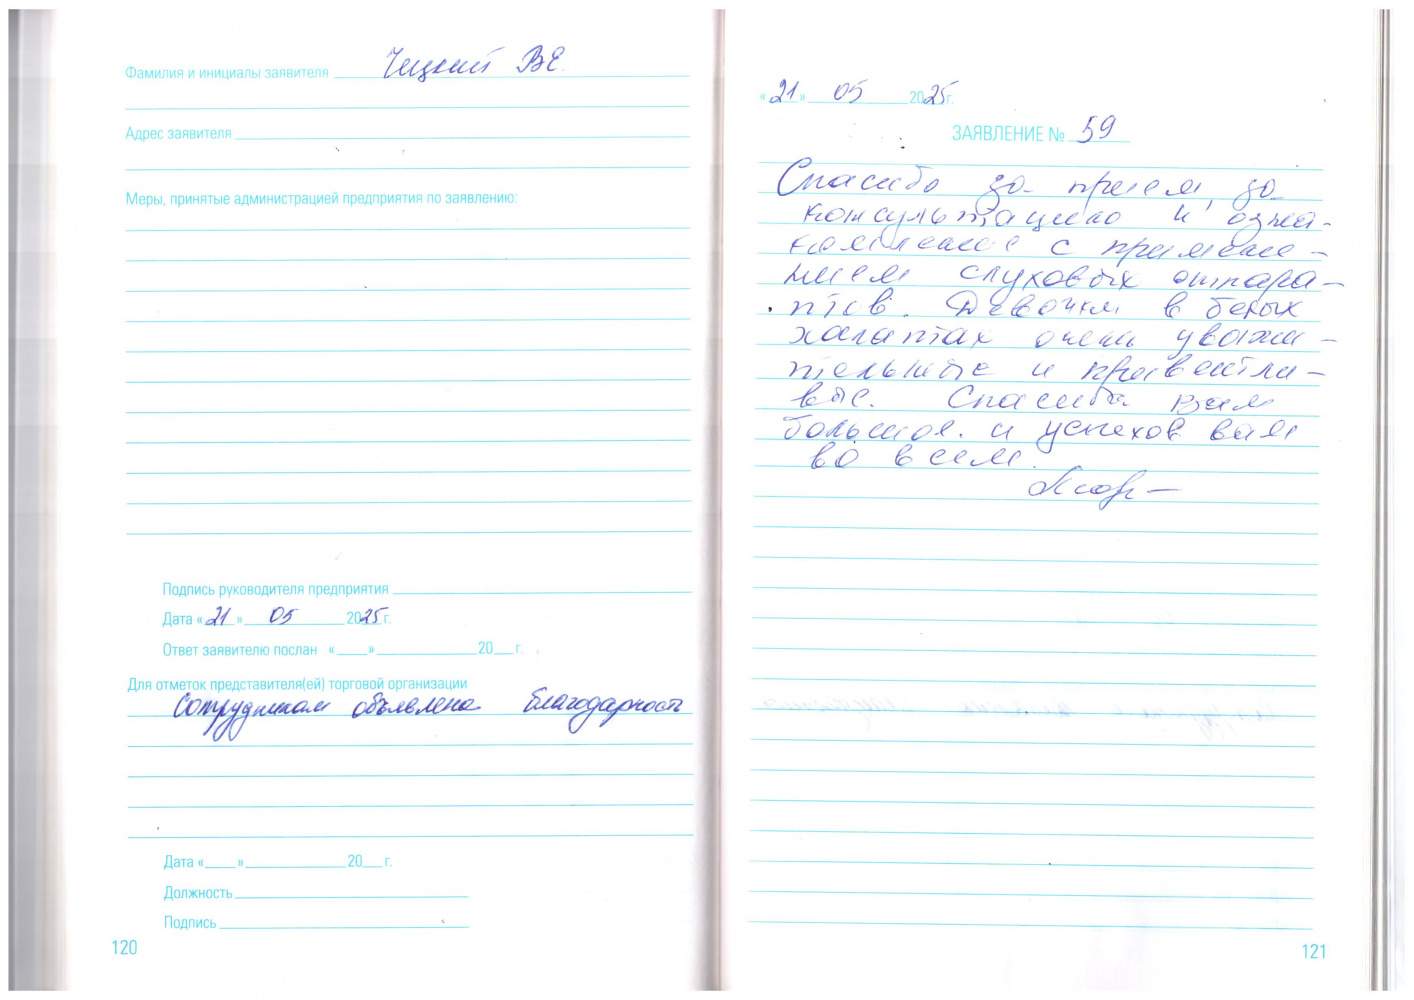 Фамилия и инициалы заявителя Чицкий В.Е.
Адрес заявителя
Меры, принятые администрацией предприятия по заявлению:
Подпись руководителя предприятия
Дата «21» 05 2025 г.
Ответ заявителю послан « » 20 г.
Для отметок представителя(ей) торговой организации
Сотрудникам объявлена благодарность
Дата « » 20 г.
Должность
Подпись
120
«21» 05 2025 г.
ЗАЯВЛЕНИЕ № 59
Спасибо за прием, за
консультацию и озна-
комление с примене-
нием слуховых аппара-
тов. Девочки в белых
халатах очень уважи-
тельные и приветли-
вые. Спасибо вам
большое. и успехов вам
во всем.
121